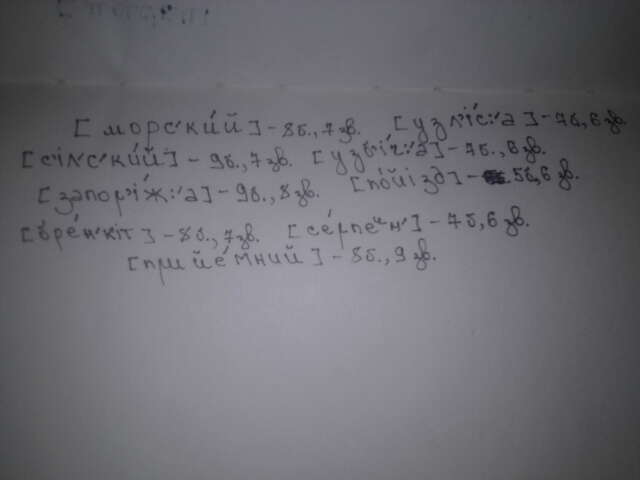 [морс'ки́й] - 8б., 7 зв. [узл'і́с':а] - 7б, 6 зв.
[с'іл'с'ки́й] - 9б., 7 зв. [узв'і́ч:а] - 7б., 6 зв.
[запор'і́ж':а] - 9б., 8 зв. [по́йізд] - 5б, 6 зв.
[бре́н'кіт] - 8б., 7 зв. [се́рпеин'] - 7б, 6 зв.
[прийе́мний] - 8б., 9 зв.